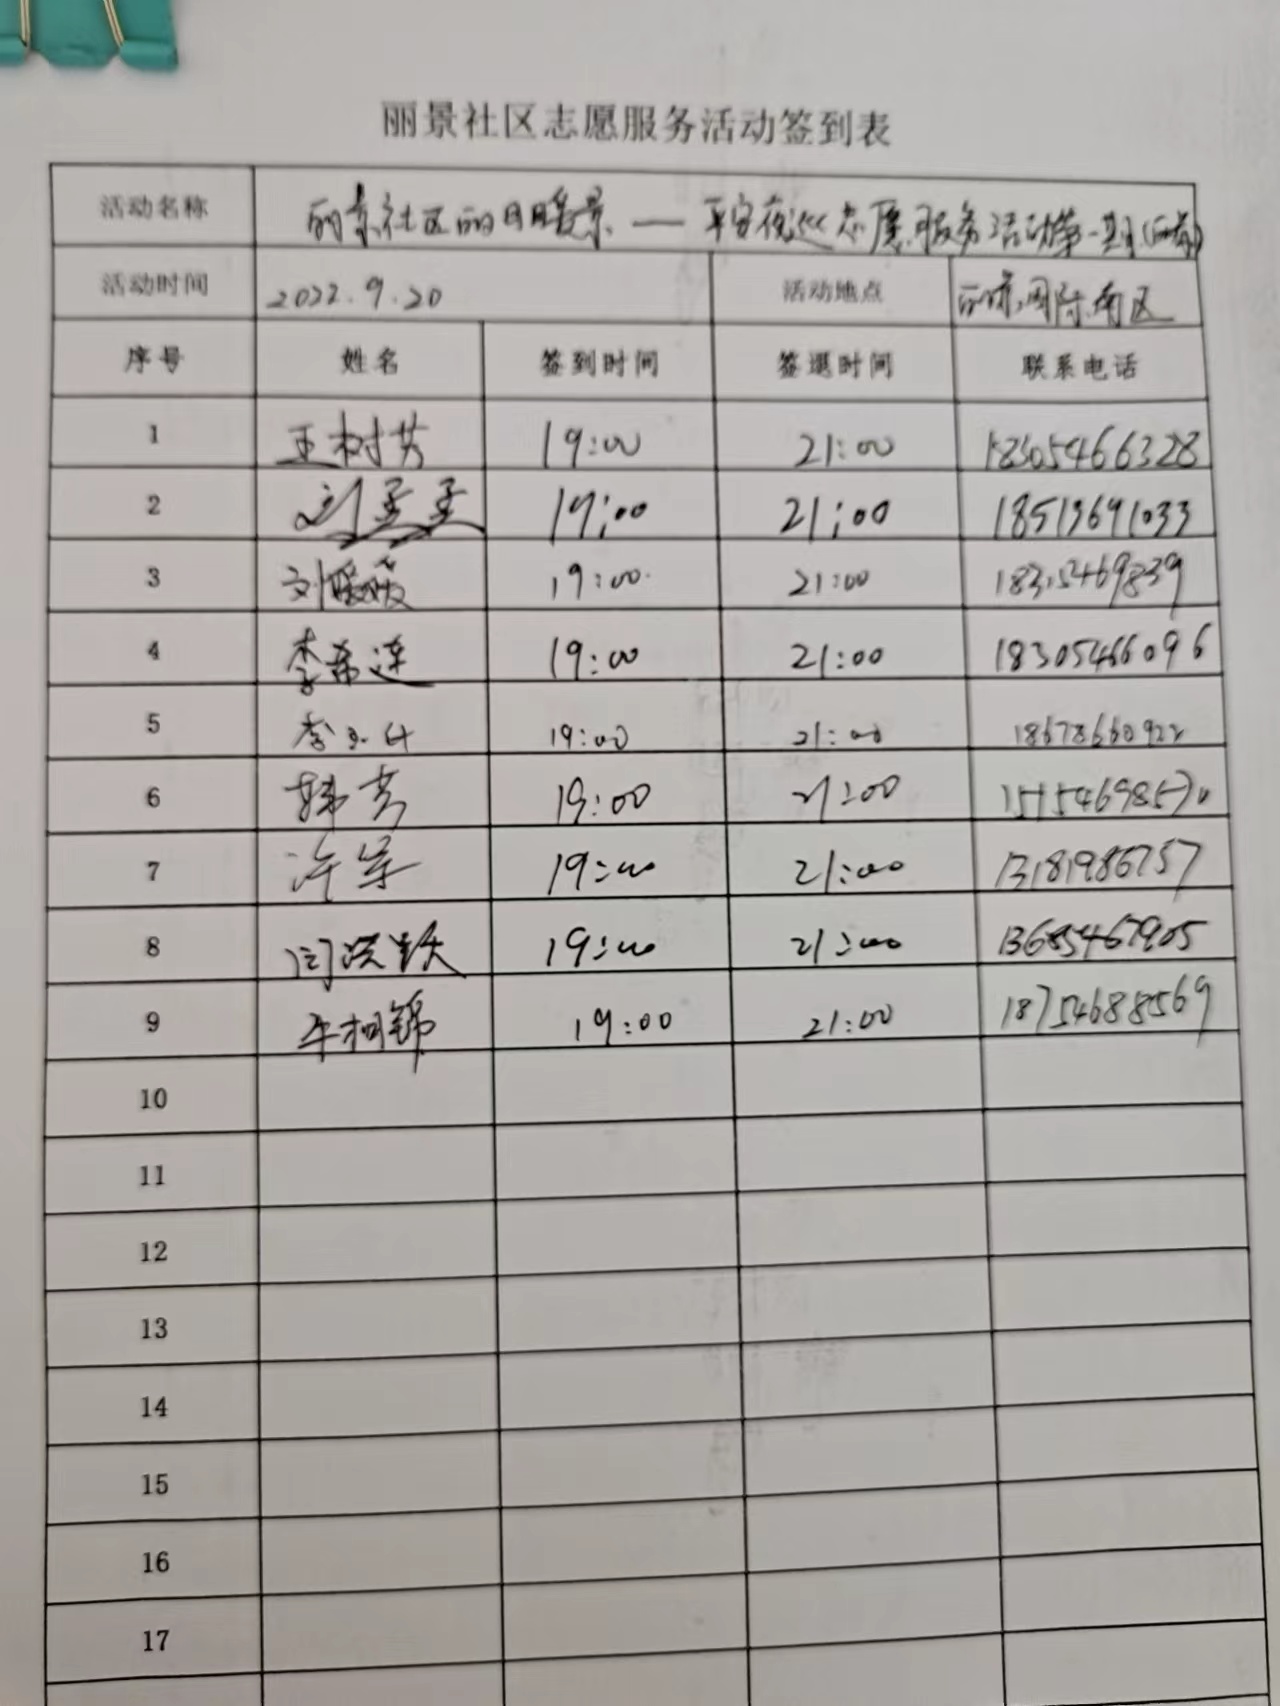 丽景社区志愿服务活动签到表
活动名称 丽景社区丽日暖景——平安夜巡志愿服务活动第一期
活动时间 2022.9.20 活动地点 丽景国际南区
序号 姓名 签到时间 签退时间 联系电话
1 王树芳 19:00 21:00 18305466328
2 刘孟孟 19:00 21:00
3 刘暖暖 19:00 21:00
4 李希莲 19:00 21:00 18305466096
5 19:00 21:00 18678660922
6 韩芳 19:00 21:00
7 许军 19:00 21:00
8 闫洪跃 19:00 21:00 13685467905
9 牛桐锦 19:00 21:00 18754688569
10
11
12
13
14
15
16
17